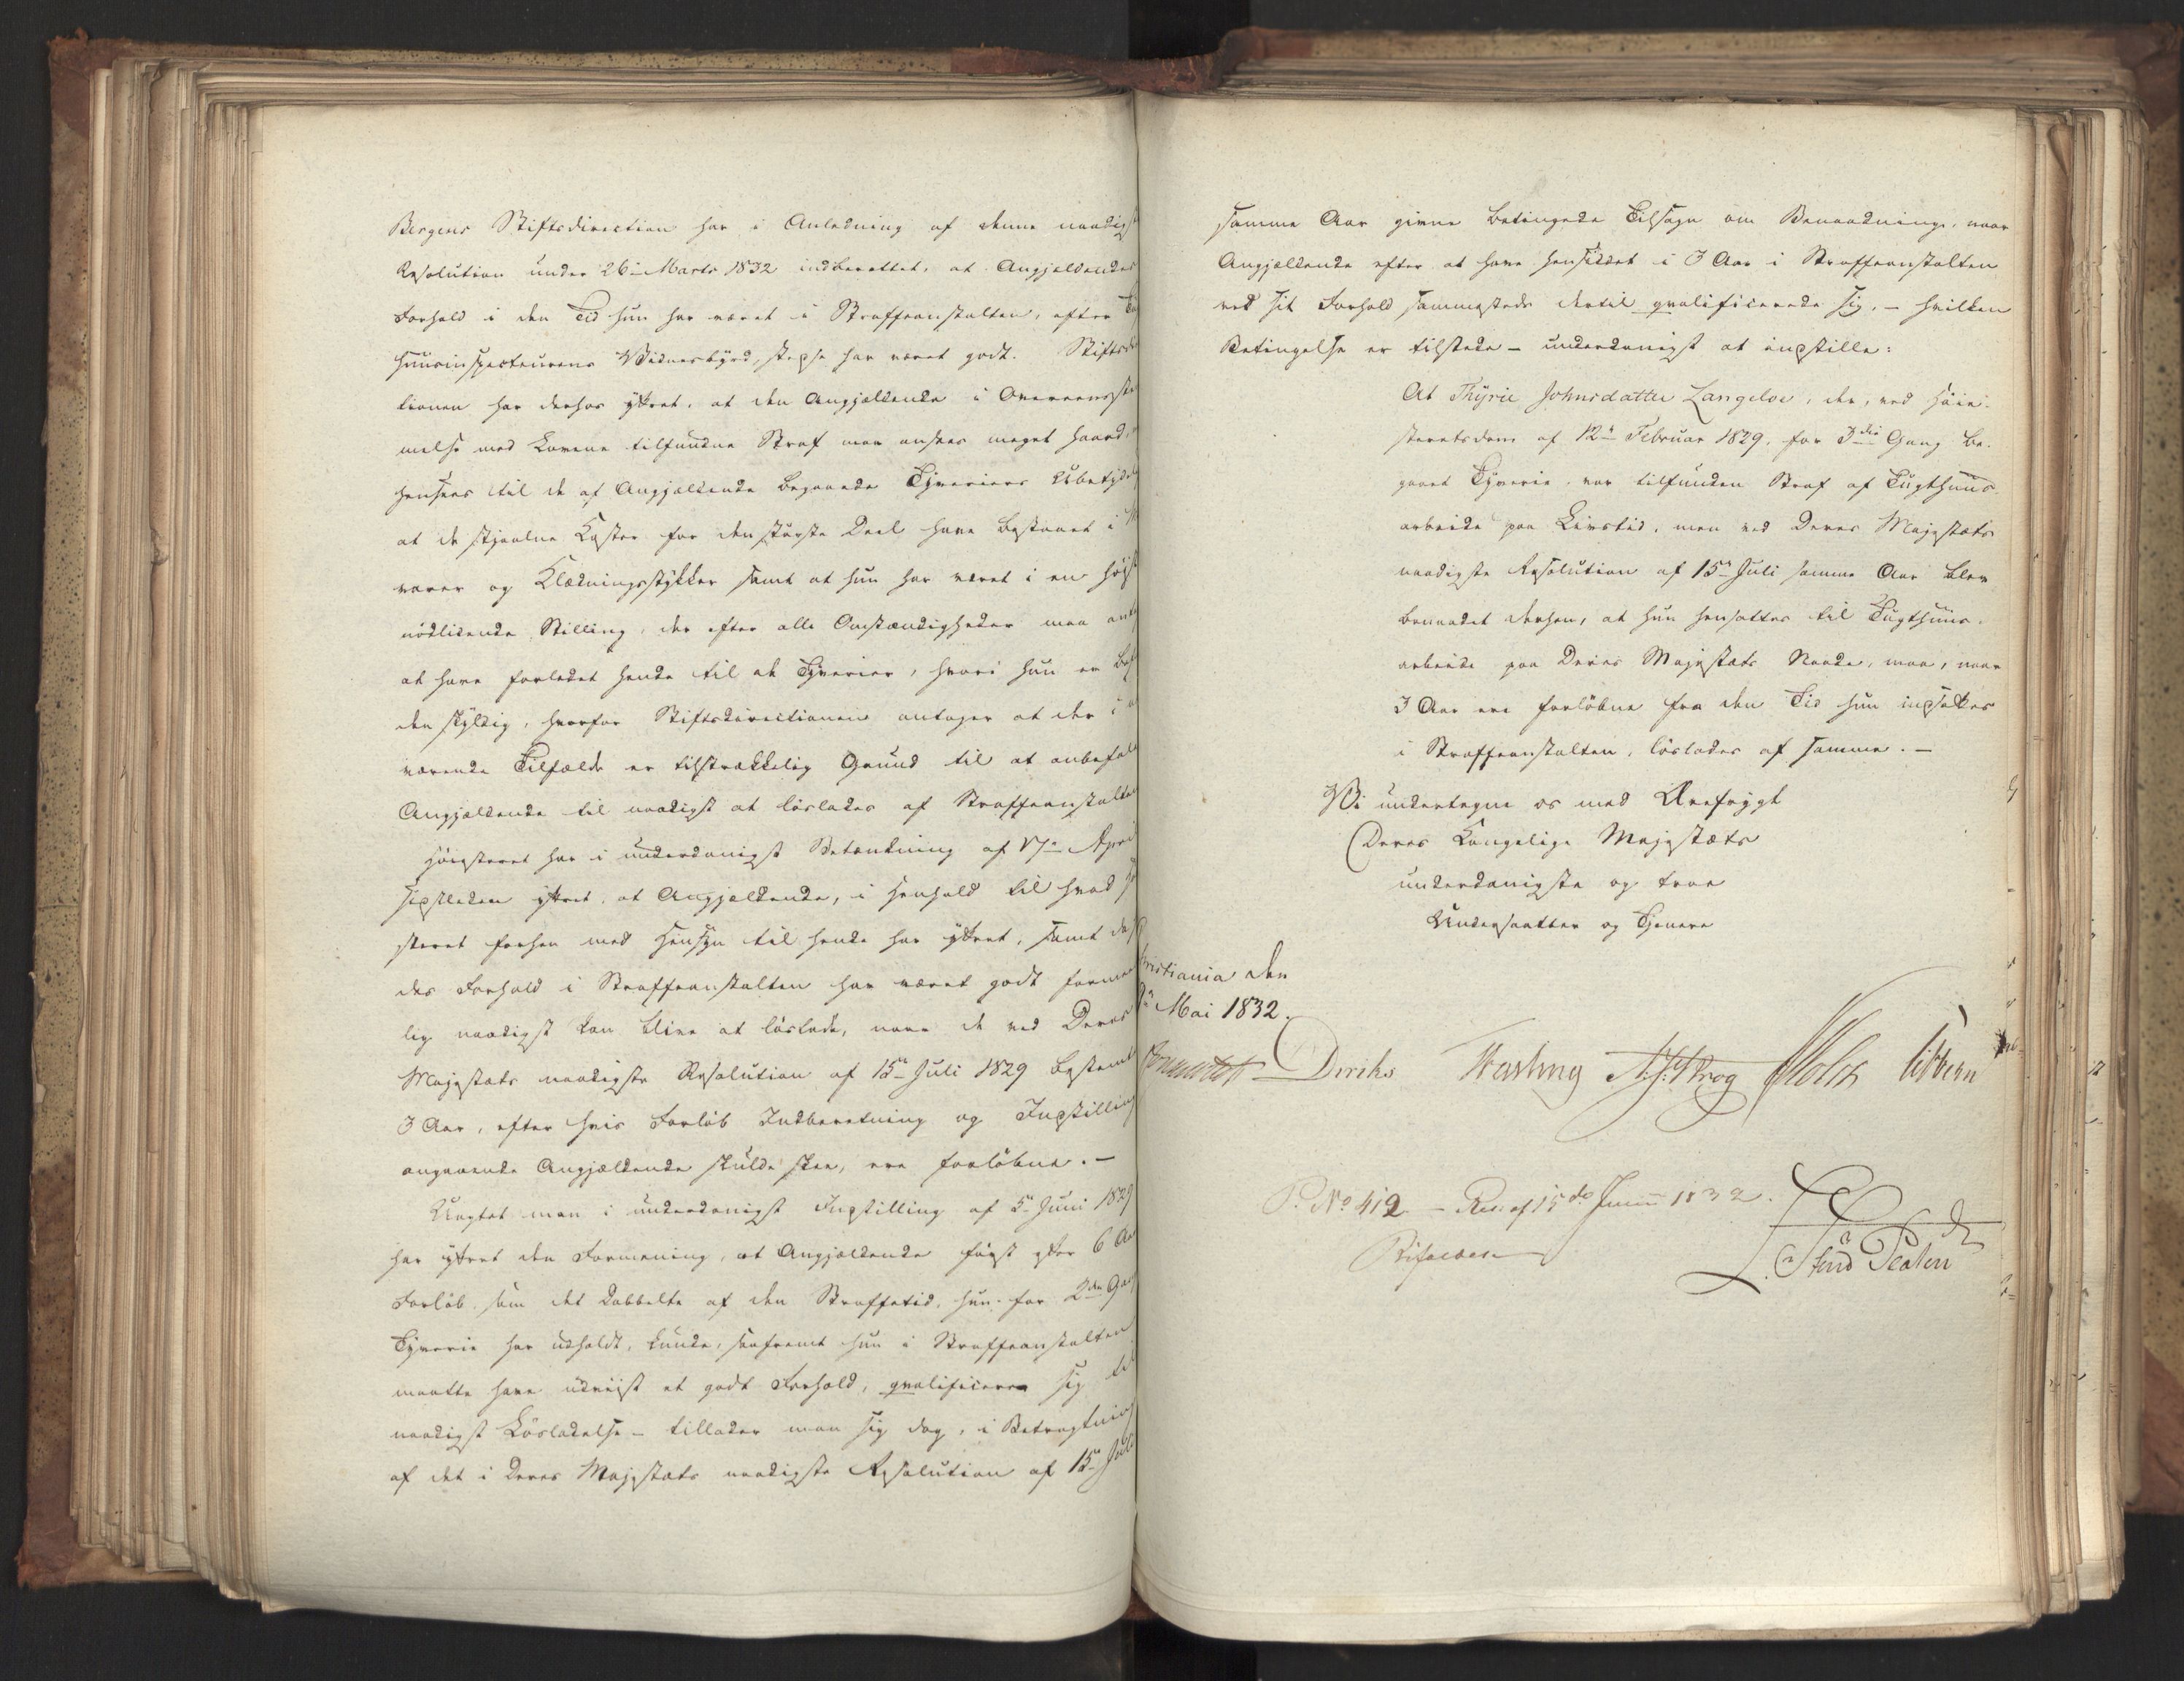 Bergens Stiftsdirection har i Anledning af denne naadigst
Resolution under 26de Marts 1832 indberettet, at Angjeldendes
Forhold i den Tid hun har været i Straffeanstalten, efter
huusinspecteurens Vidnesbyrd, stedse har været godt. Stifts
tionen har derhos yttret, at den Angjældende i Overeensste
melse med Lovene tilfundne Straf maa ansees meget haard,
henseet til de af Angjældende begaaede Tyveriers Ubetyde
at de stjaalne Koster for den største Deel have bestaaet i
varer og Klædningsstykker samt at hun har været i en høist
nødlidende Stilling, der efter alle Omstændigheder maa
at have forledet hende til de Tyverier, hvori hun er
den skyldig, hvorfor Stiftsdirectionen antager at der i
værende Tilfælde er tilstrækkelig Grund til at anbefale
Angjældende til naadigst at løslades af Straffeanstalten
Høiesteret har i underdanigst Betænkning af 17de April
sidstleden yttret, at Angjældende, i Henhold til hvad
steret forhen med Hensyn til hende har yttret, samt da
des Forhold i Straffeanstalten har været godt formeen
lig naadigst kan blive at løslade, naar de ved Deres
Majestæts naadigste Resolution af 15de Juli 1829 bestemte
3 Aar, efter hvis Forløb Indberetning og Indstilling
angaaende Angjældende skulde skee, ere forløbne. –
Uagtet man i underdanigst Indstilling af 5te Juni 1829
har yttret den Formening, at Angjældende først efter 6 Aar
Forløb, som det dobbelte af den Straffetid, hun for 2den Gang
Tyverie har udholdt, kunde, saafremt hun i Straffeanstalten
maatte have udviist et godt Forhold, qvalificere sig til
naadigst Løsladelse – tillader man sig dog, i Betragtning
af det i Deres Majestæts naadigste Resolution af 15de Juli
samme Aar givne betingede Tilsagn om Benaadning, naar
Angjældende efter at have hensiddet i 3 Aar i Straffeanstalten
ved sit Forhold sammesteds dertil qvalificerede sig, – hvilken
Betingelse er tilstede – underdanigst at indstille:
At Thyrie Johnsdatter Langeloe, der, ved Høie-
steretsdom af 12te Februar 1829, for 3die Gang be-
gaaet Tyverie, var tilfunden Straf af Tugthuus-
arbeide paa Livstid, men ved Deres Majestæts
naadigste Resolution af 15de Juli samme Aar blev
benaadet derhen, at hun hensættes til Tugthuus-
arbeide paa Deres Majestæts Naade, maa, naar
3 Aar ere forløbne fra den Tid hun indsattes
i Straffeanstalten, løslades af samme. –
Vi undertegne os med Ærefrygt
Deres Kongelige Majestæts
underdanigste og troe
Undersaatter og Tjenere
Christiania den
Mai 1832.
Diriks Fasting Krog Holst Sibbern
P. No 412 – Res. af 15de Junii 1832.
Bifaldes